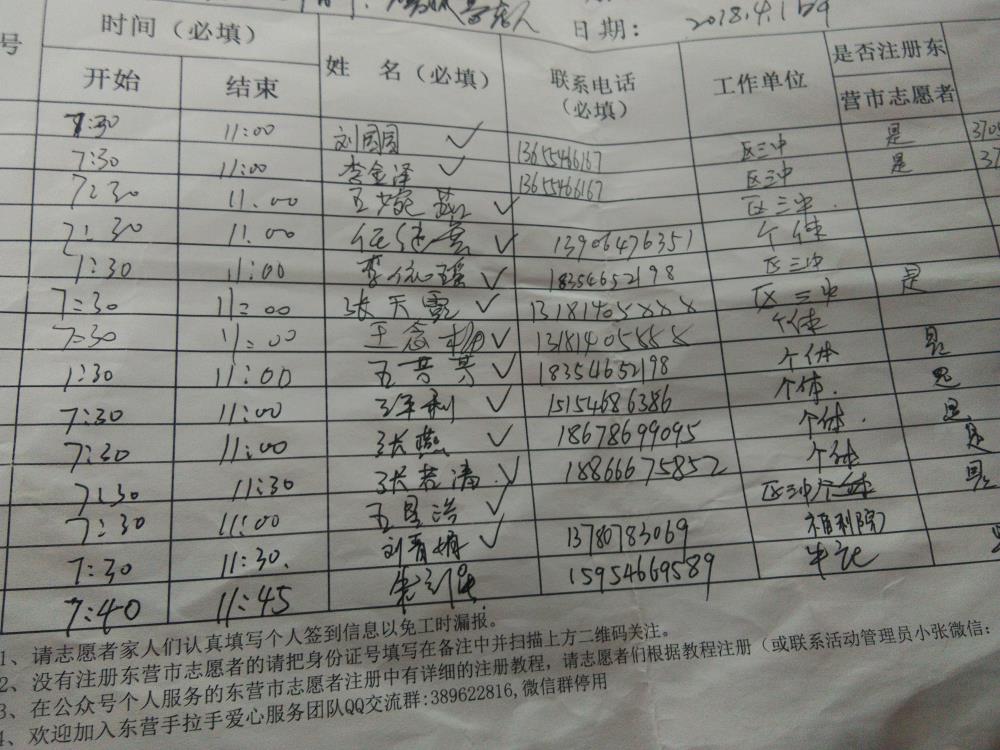 日期: 2018.4.1
号 时间（必填） 姓 名（必填） 联系电话（必填） 工作单位 是否注册东营市志愿者
开始 结束
7:30 11:00 刘圆圆 ✓ 13655466167 区三中 是
7:30 11:00 李金泽 ✓ 13655466167 区三中 是
7:30 11:00 ✓ 区三中
7:30 11:00 ✓ 13906476351 个体
7:30 11:00 李依瑶 ✓ 18354652198 区三中
7:30 11:00 张天 ✓ 13181405888 区三中 是
7:30 11:00 王念 ✓ 13181405888 个体
1:30 11:00 ✓ 18354652198 个体 是
7:30 11:00 ✓ 15154686386 个体. 是
7:30 11:00 张燕 ✓ 18678699095 个体. 是
7:30 11:30 张若清 ✓ 18866675852 个体 是
7:30 11:00 ✓ 区三中 是
7:30 11:30. 刘 ✓ 13780783069 福利院
7:40 11:45 15954669589
1、请志愿者家人们认真填写个人签到信息以免工时漏报。
2、没有注册东营市志愿者的请把身份证号填写在备注中并扫描上方二维码关注。
3、在公众号个人服务的东营市志愿者注册中有详细的注册教程，请志愿者们根据教程注册（或联系活动管理员小张微信：
4、欢迎加入东营手拉手爱心服务团队QQ交流群:389622816,微信群停用